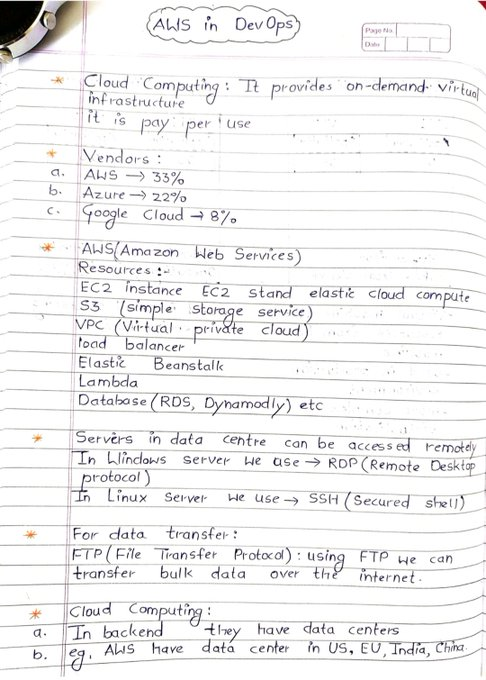 AWS in DevOps
Page No.
Date
* Cloud Computing : It provides on-demand virtual
infrastructure
it is pay per use
* Vendors :
a. AWS → 33%
b. Azure → 22%
c. Google Cloud → 8%
* AWS (Amazon Web Services)
Resources :-
EC2 instance EC2 stand elastic cloud compute
S3 (simple storage service)
VPC (Virtual private cloud)
load balancer
Elastic Beanstalk
Lambda
Database (RDS, Dynamodly) etc
* Servers in data centre can be accessed remotely
In Windows server we use → RDP (Remote Desktop
protocol)
In Linux Server we use → SSH (Secured shell)
* For data transfer :
FTP (File Transfer Protocol) : using FTP we can
transfer bulk data over the internet.
* Cloud Computing :
a. In backend they have data centers
b. eg. AWS have data center in US, EU, India, China.